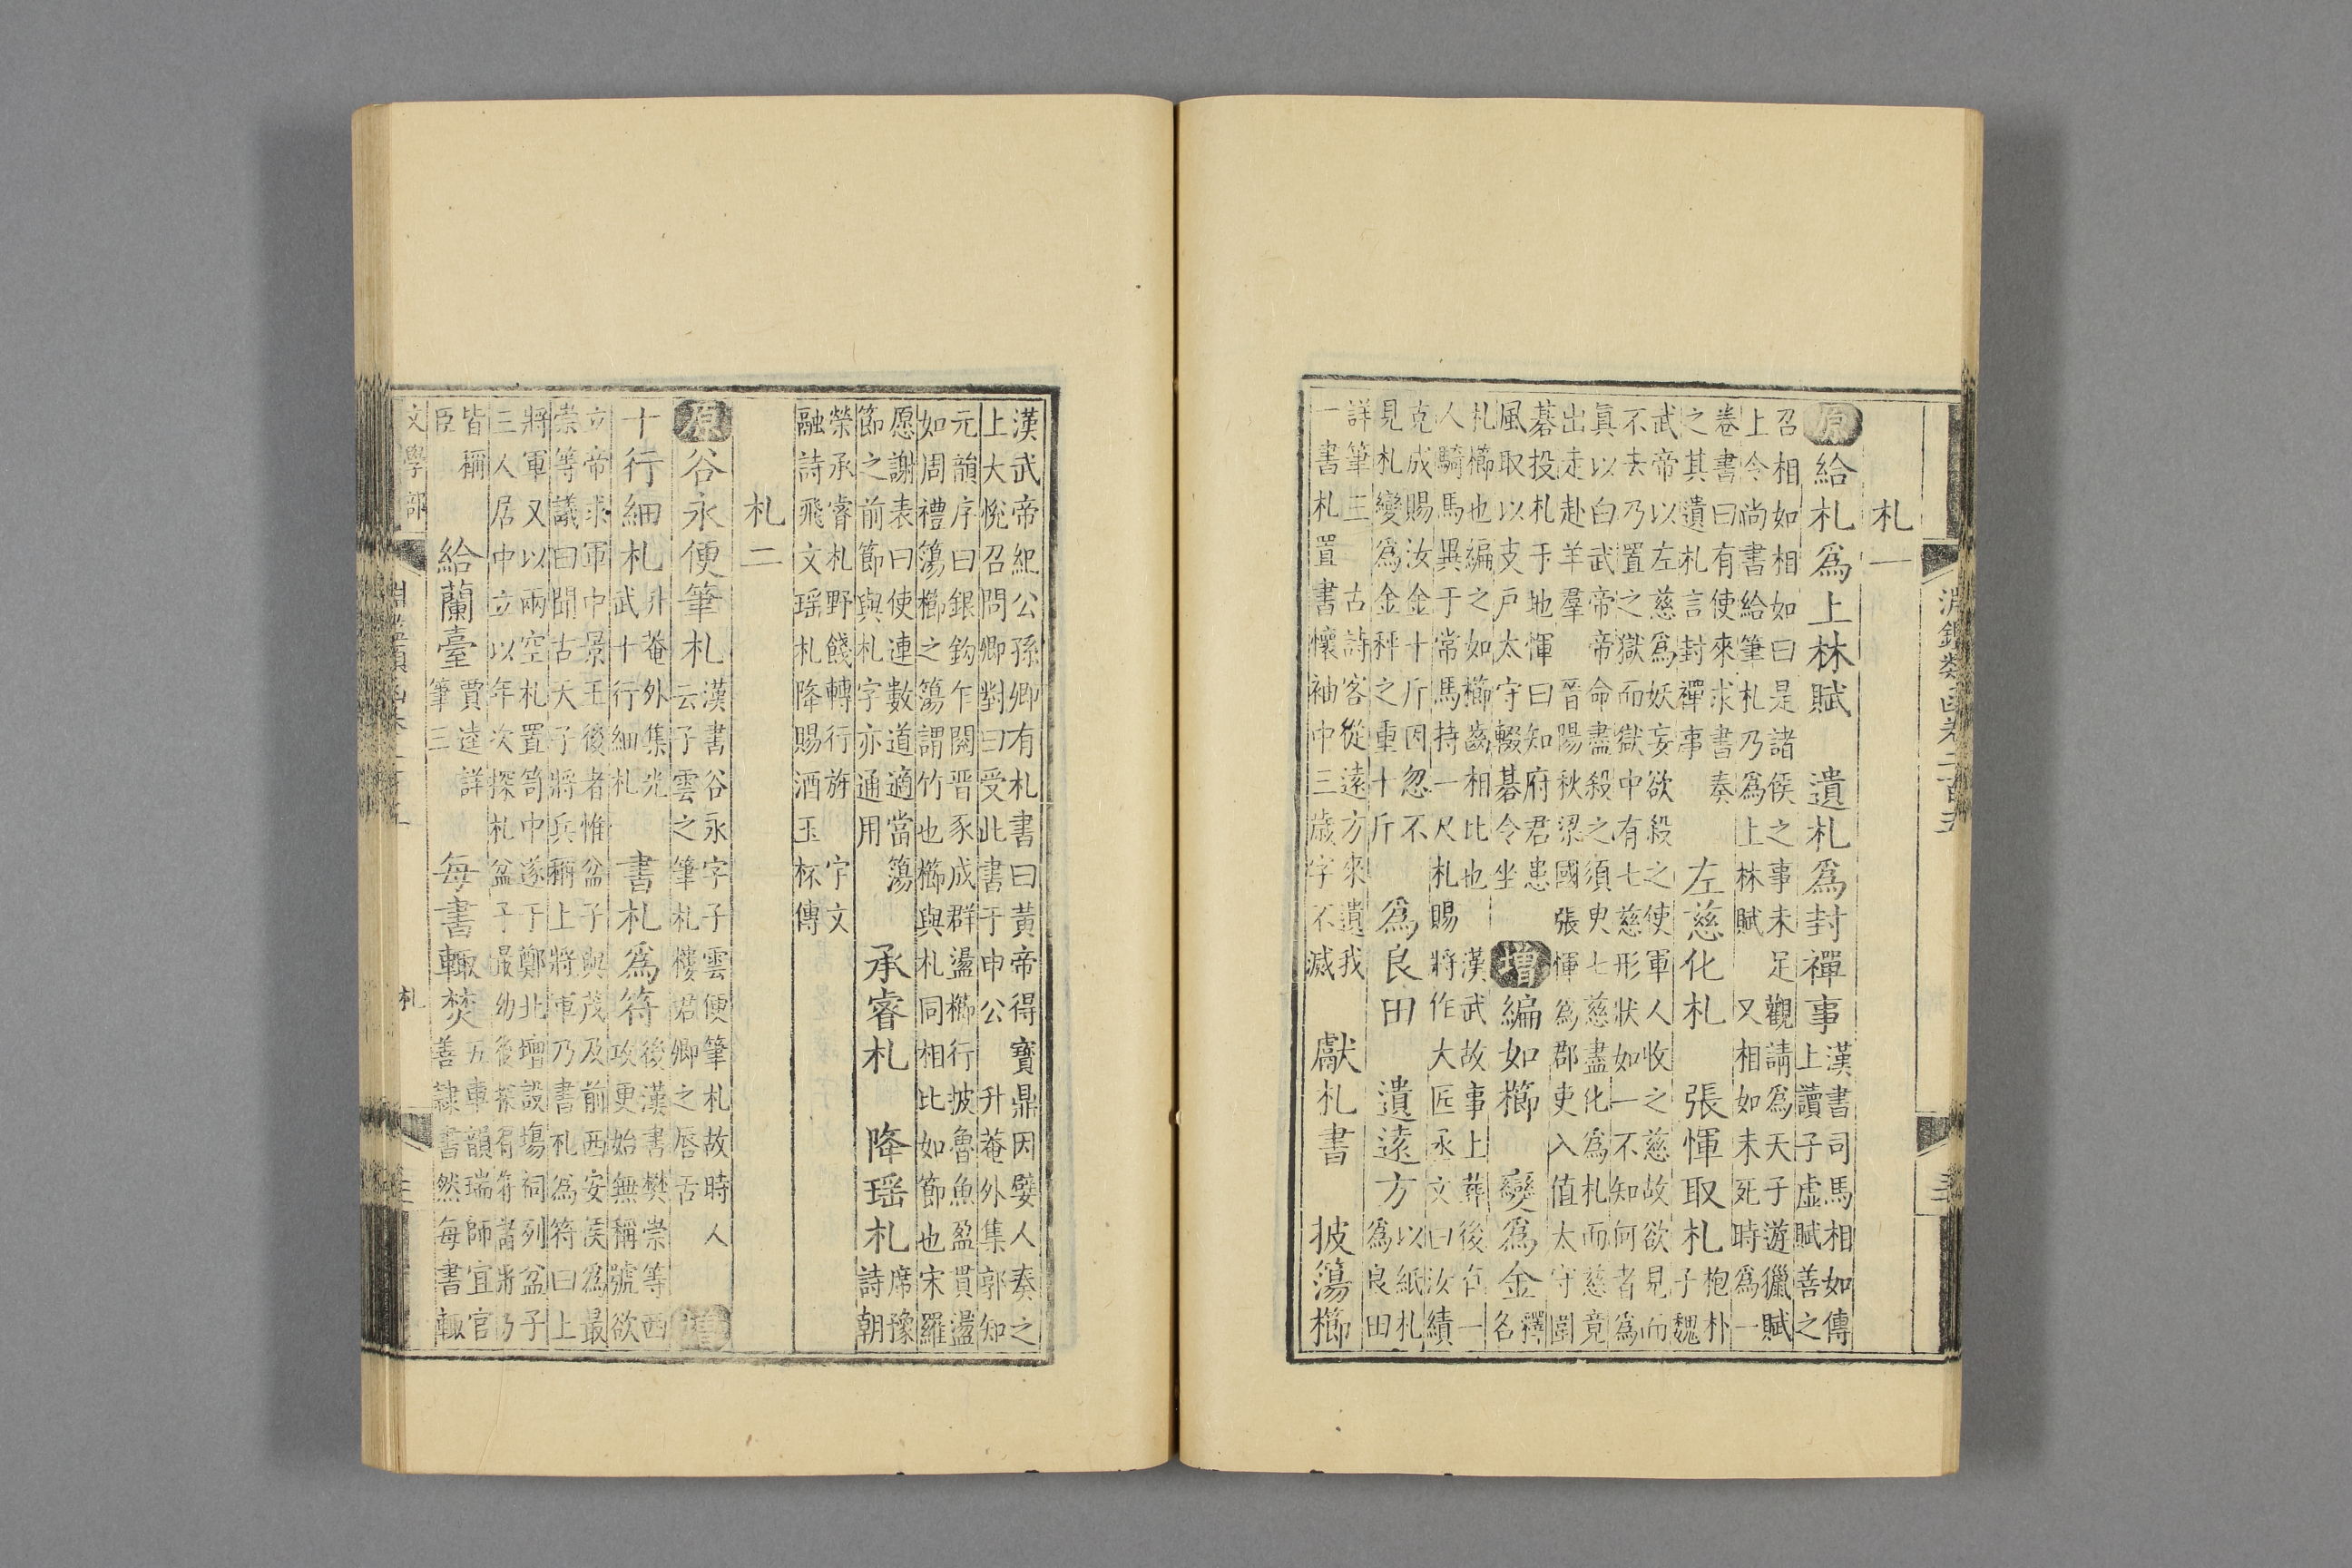 淵鑑類函卷二百五
札一
原給札爲上林賦 遺札爲封禪事
漢書司馬相如傳
上讀子虛賦善之
召相如相如曰是諸侯之事未足觀請爲天子遊獵賦
上令尚書給筆札乃爲上林賦 又相如未死時爲一
卷書曰有使來求書奏
之其遺札言封禪事
左慈化札 張惲取札
抱朴
子魏
武帝以左慈爲妖妄欲殺之使軍人收之慈故欲見而
不去乃置之獄而獄中有七慈形狀如一不知何者爲
眞以白武帝帝命盡殺之須臾七慈盡化爲札而慈竟
出走赴羊羣 晉陽秋梁國張惲爲郡吏入值太守圍
棊投札于地惲曰知府君患
風取以支戶太守輟棊令坐
增編如櫛 變爲金
釋
名
札櫛也編之如櫛齒相比也 漢武故事上葬後有一
人騎馬異于常馬持一尺札賜將作大匠丞文曰汝績
克成賜汝金十斤因忽不
見札變爲金秤之重十斤
爲良田 遺遠方
以紙札
爲良田
詳筆三 古詩客從遠方來遺我
一書札置書懷袖中三歲字不滅
獻札書 披簜櫛
漢武帝紀公孫卿有札書曰黃帝得寶鼎因嬖人奏之
上大悅召問卿對曰受此書于申公 升菴外集郭知
元韻序曰銀鈎乍閱晋豕成群盪櫛行披魯魚盈貫盪
如周禮簜櫛之簜謂竹也櫛與札同相比如節也宋羅
愿謝表曰使連數道適當簜
節之前節節與札字亦通用
承睿札 降瑶札
席豫
詩朝
榮承睿札野餞轉行旂 宇文
融詩飛文瑶札降賜酒玉杯傳
札二
原谷永便筆札
漢書谷永字子雲便筆札故時人
云子雲之筆札樓君卿之唇舌
增
十行細札
升菴外集光
武十行細札
書札爲符
後漢書樊崇等西
攻更始無稱號欲
立帝求軍中景王後者惟盆子與茂及前西安侯爲最
崇等議曰聞古天子將兵稱上將軍乃書札爲符曰上
將軍又以兩空札置笥中遂于鄭北增設塲祠列盆子
三人居中立以年次探札盆子最幼後探得符諸將乃
皆稱
臣
給蘭臺
賈逵詳
筆三
每書輙焚
五車韻瑞師宜官
善隷書然每書輙
文學部
札